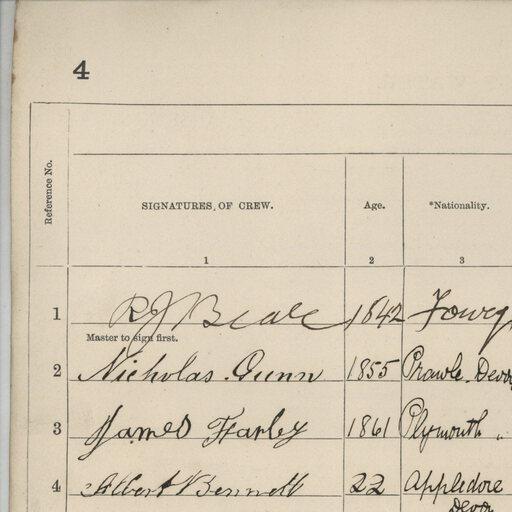 4
Reference No.
SIGNATURES, OF CREW.
Age.
*Nationality.
1
2
3
1 R J Beale 1842 Fowey
Master to sign first.
2 Nicholas Gunn 1855 Prawle. Devon
3 James Farley 1861 Plymouth "
4 Albert Bennett 22 Appledore
Devon